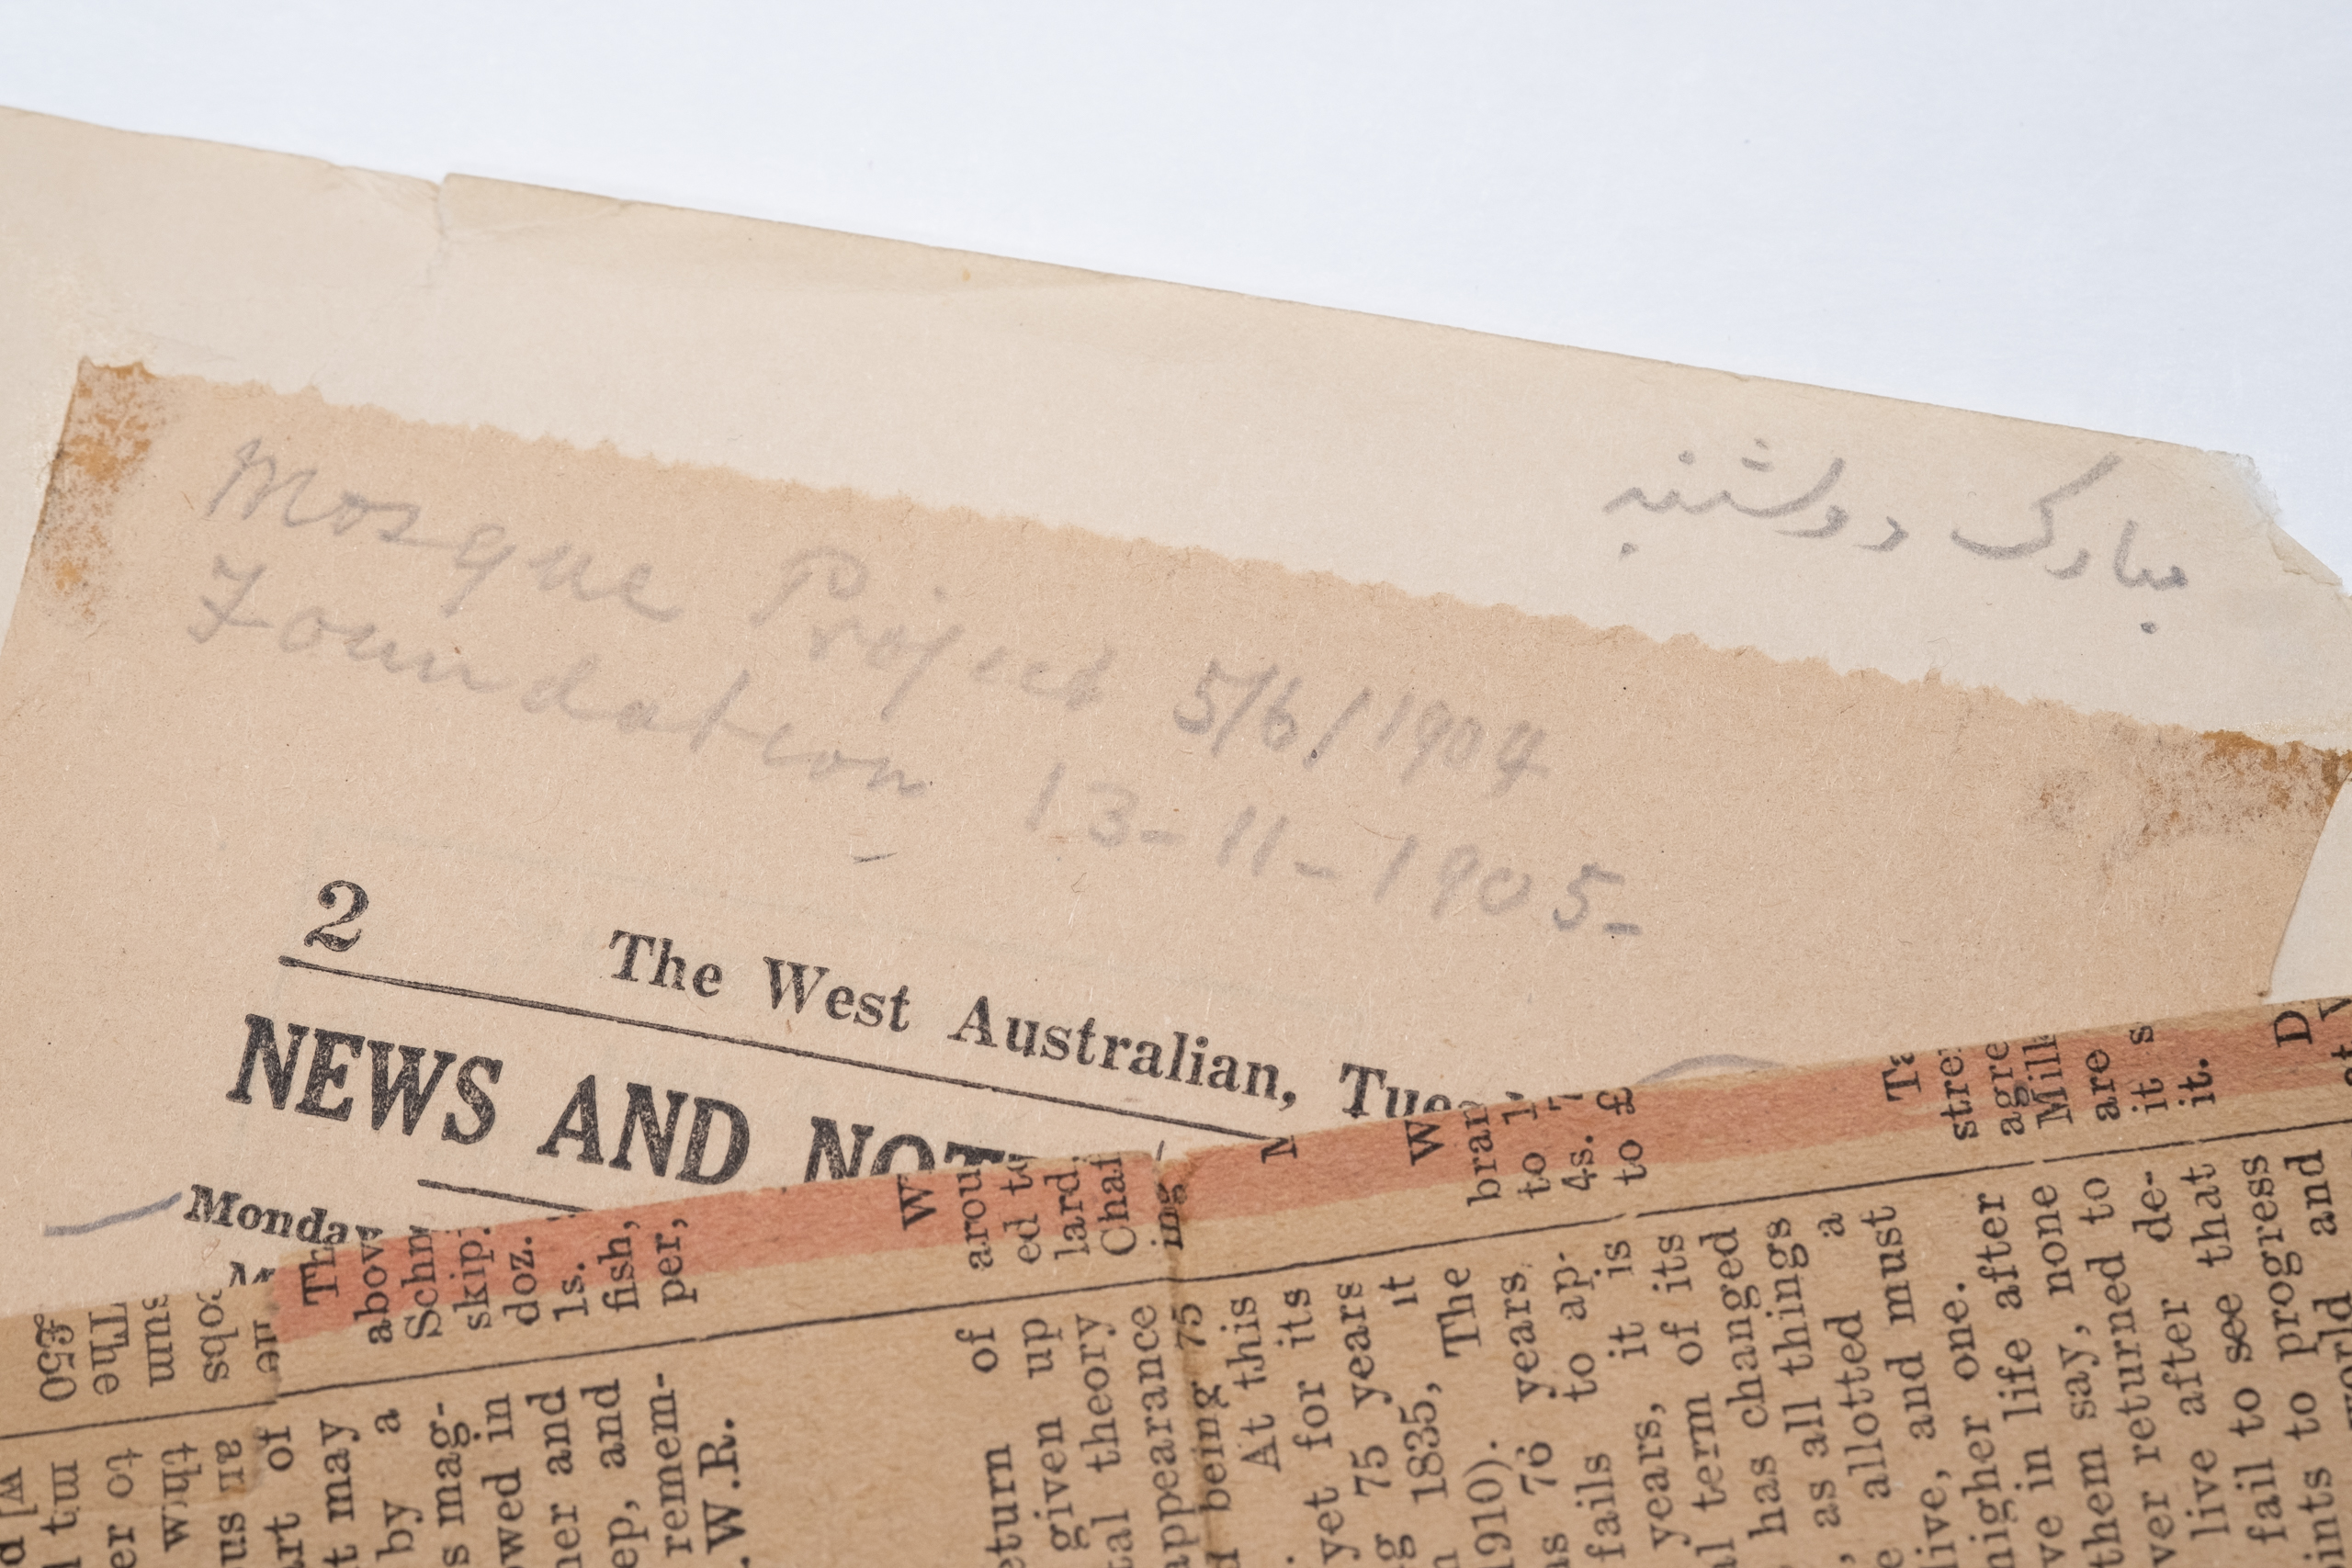 مبارک دوشنبہ
Mosque Project 5/6/1904
Foundation 13-11-1905-
2 The West Australian,
NEWS AND
Monday
abov
Schn
skip.
doz.
1s.
fish,
per,
arou
ed to
lard,
Chaf
ing
W
bran
to 1
4s. 7
to £
Ta
stre
agre
Mill
are
it s
it.
£50
The
sum
art of
t may
by a
s mag-
owed in
her and
ep, and
remem-
.W.R.
eturn of
given up
tal theory
appearance
d being 75
At this
yet for its
g 75 years
n 1835, it
1910). The
as 76 years
fails to ap-
years, it is
al term of its
has changed
, as all things
e allotted a
live, and must
higher one.
ve in life after
them say, none
ver returned to
live after de-
fail to see that
ints to progress
world and